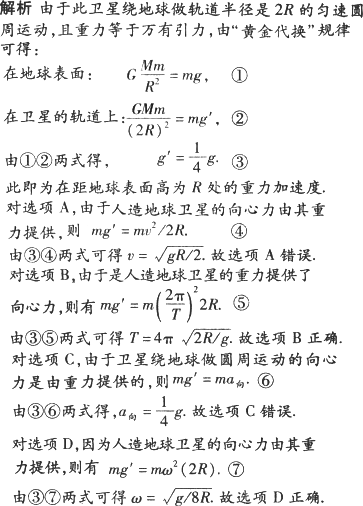 解析 由于此卫星绕地球做轨道半径是 2R 的匀速圆
周运动,且重力等于万有引力,由“黄金代换”规律
可得:
在地球表面: G\frac{Mm}{R^2}=mg, ①
在卫星的轨道上:\frac{GMm}{(2R)^2}=mg′, ②
由①②两式得, g′=\frac{1}{4}g. ③
此即为在距地球表面高为 R 处的重力加速度.
对选项 A,由于人造地球卫星的向心力由其重
力提供,则 mg′=mv²/2R. ④
由③④两式可得 v=\sqrt{gR/2}. 故选项 A 错误.
对选项 B,由于是人造地球卫星的重力提供了
向心力,则有 mg′=m(\frac{2π}{T})^2 2R. ⑤
由③⑤两式可得 T=4π \sqrt{2R/g}. 故选项 B 正确.
对选项 C,由于卫星绕地球做圆周运动的向心
力是由重力提供的,则 mg′=ma向. ⑥
由③⑥两式得,a向=\frac{1}{4}g. 故选项 C 错误.
对选项 D,因为人造地球卫星的向心力由其重
力提供,则有 mg′=mω²(2R). ⑦
由③⑦两式可得 ω=\sqrt{g/8R}. 故选项 D 正确.